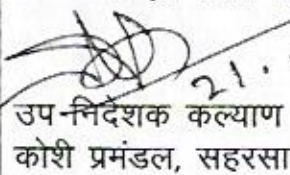 21.
उप-निदेशक कल्याण
कोशी प्रमंडल, सहरसा